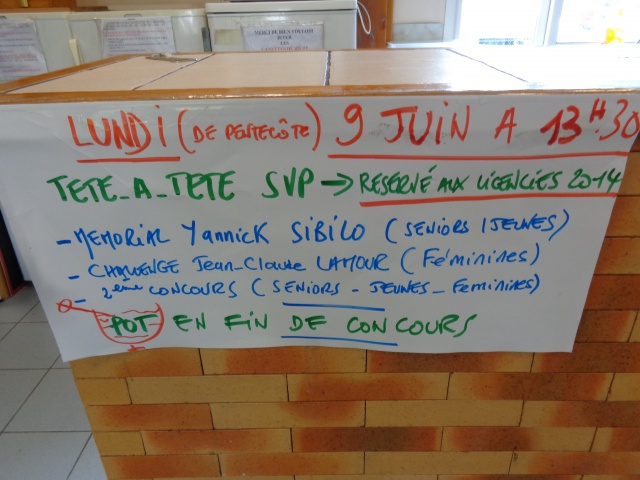 MERCI DE BIEN VOULOIR
LUNDI (DE PENTECÔTE) 9 JUIN A 13H.30
TETE_A_TETE SVP → RESERVÉ AUX LICENCIES 2014
- MEMORIAL Yannick SIBILO (SENIORS / JEUNES)
- CHALLENGE Jean-Claude LAMOUR (Féminines)
- 2ème CONCOURS (SENIORS - JEUNES - Feminines)
POT EN FIN DE CONCOURS